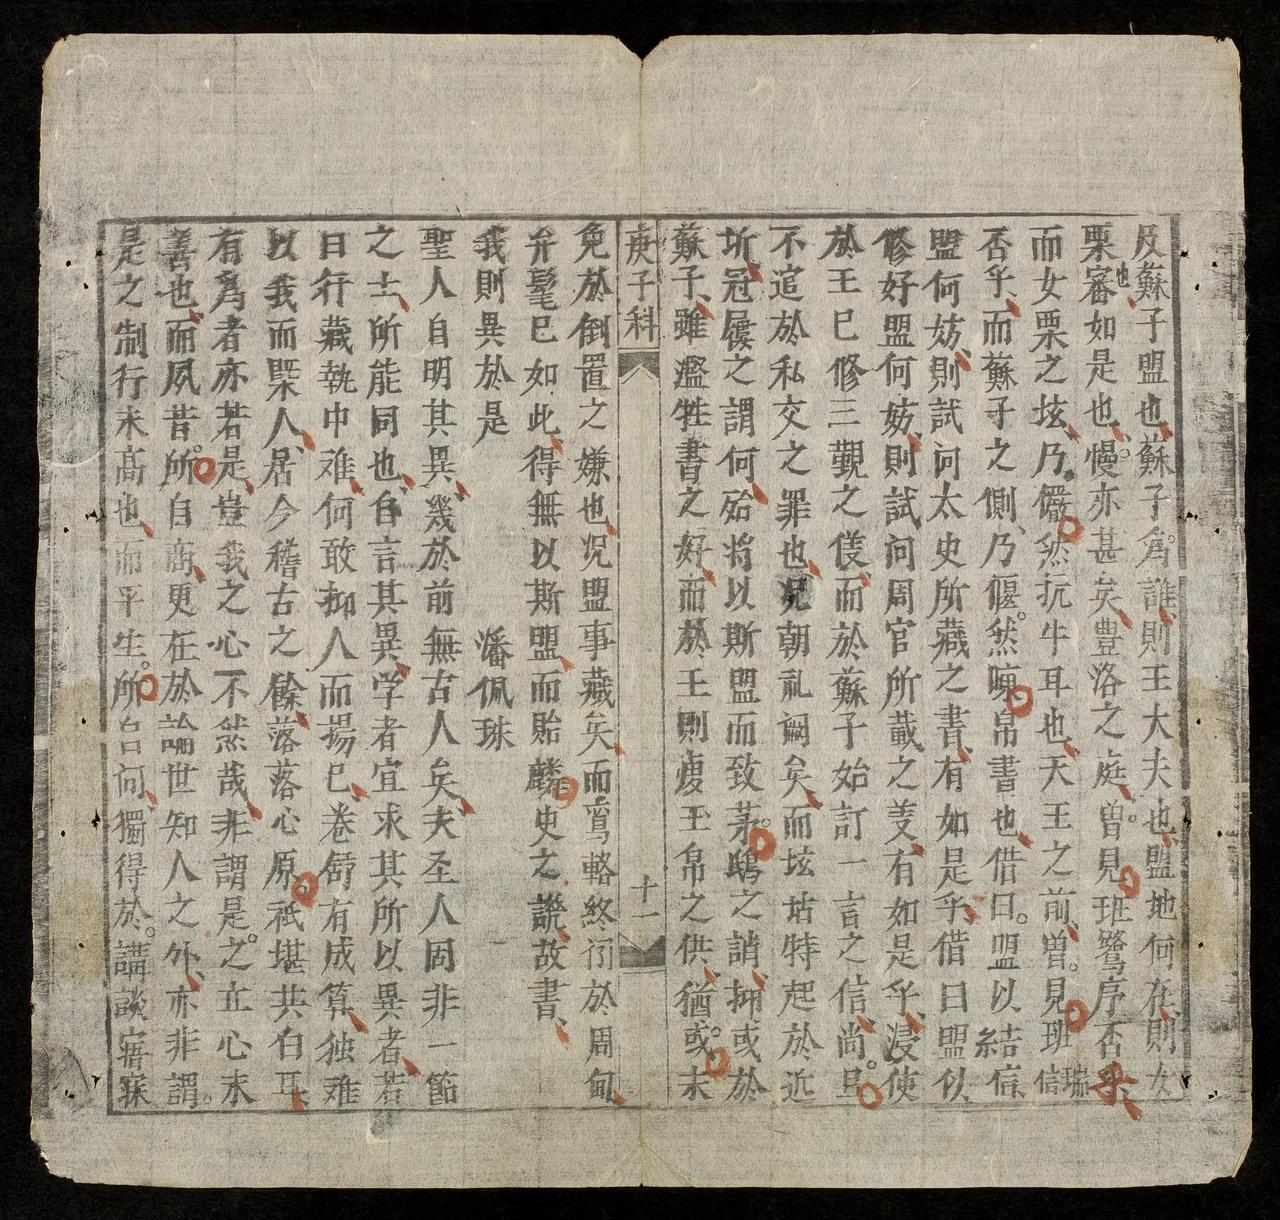 及蘇子盟也蘇子為誰則王大夫也盟地何在則女
栗審也如是也慢亦甚矣豐洛之庭曾見班鷺序否乎
而女栗之坛乃儼然抗牛耳也天王之前曾見班瑞信
否乎而蘇子之側乃偃然瀆帛書也借曰盟以結信
盟何妨則試问太史所藏之書有如是乎借曰盟以
修好盟何妨則試问周官所載之芰有如是乎浸使
於王已修三觐之侯而於蘇子始訂一言之信尚且
不追於私交之罪也况朝礼阙矣而坛坫特起於近
圻冠屨之謂何殆將以斯盟而致茅鴟之誚抑或於
蘇子雖濫牲書之好而於王則虔玉帛之供猶或未
庚子科
十一
免於倒置之嫌也况盟事藏矣而鸾輅終阏於周甸
弁髦已如此得無以斯盟而貽麟史之譏故書
我則異於是 潘佩珠
聖人自明其異幾於前無古人矣夫圣人固非一節
之士所能同也自言其異学者宜求其所以異者若
曰行藏執中难何敢抑人而揚已卷舒有成算独难
以我而槩人居今稽古之餘落落心原祇堪共白耳
有爲者亦若是豈我之心不然哉非謂是之立心未
善也而夙昔所自商更在於論世知人之外亦非謂
是之制行未高也而平生所自问獨得於講談寤寐